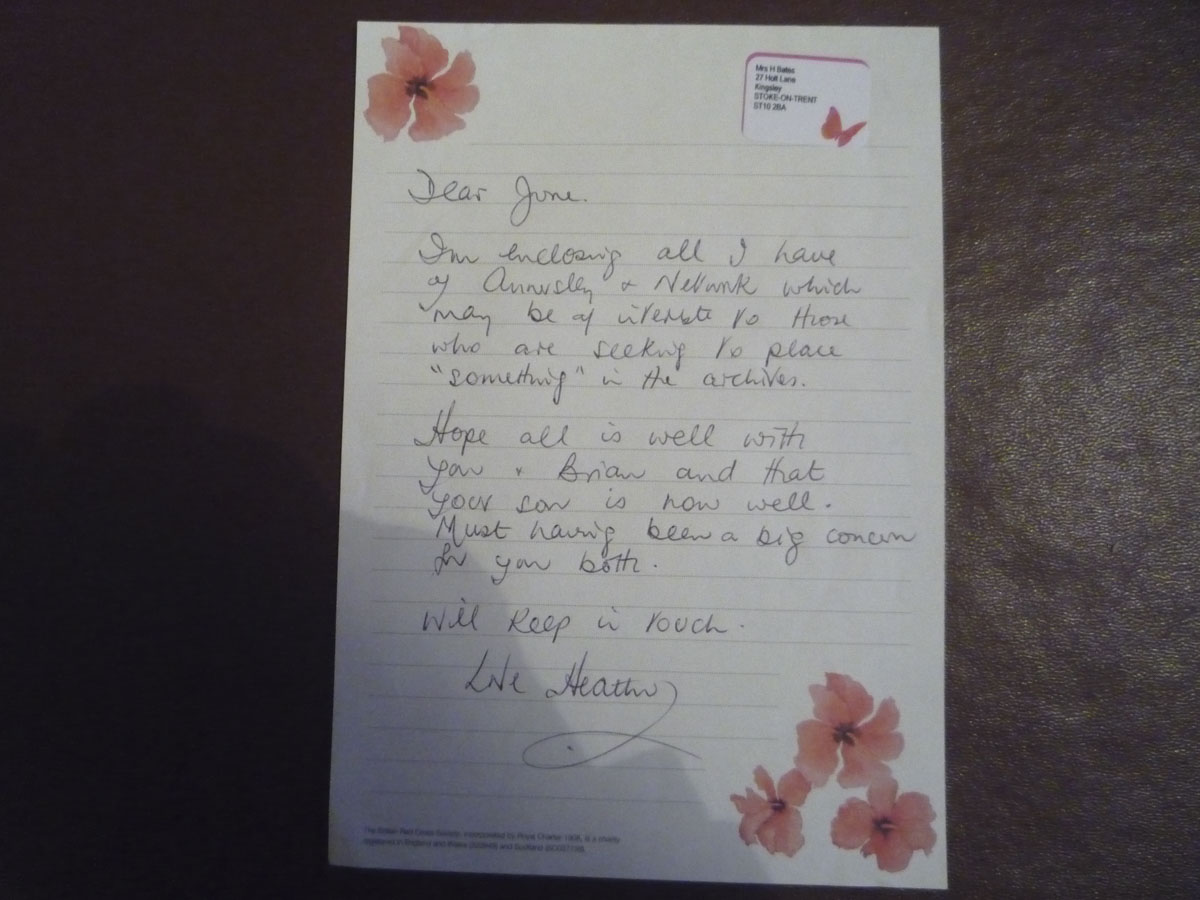 Mrs H Bates
27 Holt Lane
Kingsley
STOKE-ON-TRENT
ST10 2BA
Dear June.
I'm enclosing all I have
of Annersley & Network which
may be of interest to those
who are seeking to place
"something" in the archives.
Hope all is well with
you & Brian and that
your son is now well.
Must having been a big concern
for you both.
Will keep in touch.
Love Heather
The British Red Cross Society, incorporated by Royal Charter 1908, is a charity
registered in England and Wales (220949) and Scotland